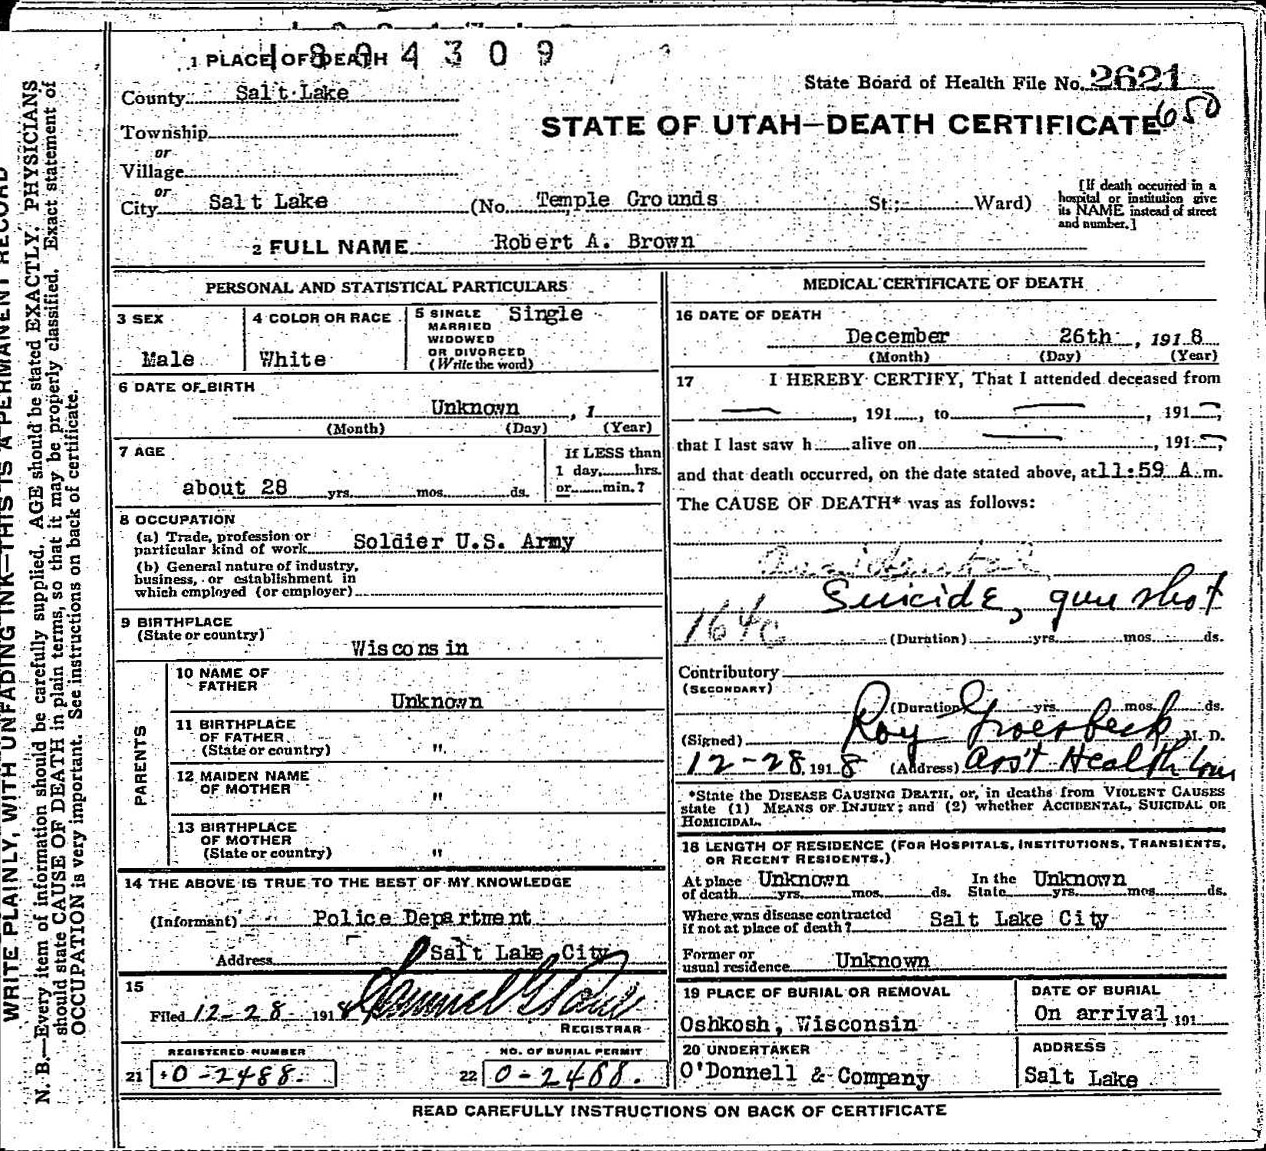 1 PLACE OF DEATH
1804309
State Board of Health File No. 2621
County Salt Lake
650
STATE OF UTAH—DEATH CERTIFICATE
Township
or
Village
or
City Salt Lake (No. Temple Grounds St.; Ward)
[If death occurred in a hospital or institution give its NAME instead of street and number.]
2 FULL NAME Robert A. Brown
PERSONAL AND STATISTICAL PARTICULARS
3 SEX Male
4 COLOR OR RACE White
5 SINGLE MARRIED WIDOWED OR DIVORCED (Write the word) Single
6 DATE OF BIRTH
Unknown, 1
(Month) (Day) (Year)
7 AGE
about 28 yrs. mos. ds.
If LESS than
1 day, hrs.
or min.?
8 OCCUPATION
(a) Trade, profession or
particular kind of work Soldier U.S. Army
(b) General nature of industry,
business, or establishment in
which employed (or employer)
9 BIRTHPLACE
(State or country)
Wisconsin
PARENTS
10 NAME OF
FATHER
Unknown
11 BIRTHPLACE
OF FATHER
(State or country) "
12 MAIDEN NAME
OF MOTHER "
13 BIRTHPLACE
OF MOTHER
(State or country) "
14 THE ABOVE IS TRUE TO THE BEST OF MY KNOWLEDGE
(Informant) Police Department
Address Salt Lake City
15
Filed 12-28- 1918
REGISTRAR
REGISTERED NUMBER
21 0-2488.
NO. OF BURIAL PERMIT
22 0-2488.
MEDICAL CERTIFICATE OF DEATH
16 DATE OF DEATH
December 26th, 1918
(Month) (Day) (Year)
17 I HEREBY CERTIFY, That I attended deceased from
—, 191 , to —, 191 ,
that I last saw h alive on —, 191 ,
and that death occurred, on the date stated above, at 11:59 A.m.
The CAUSE OF DEATH* was as follows:
Suicide, gun shot
164c (Duration) yrs. mos. ds.
Contributory
(SECONDARY)
(Duration) yrs. mos. ds.
(Signed) Roy Groesbeck M. D.
12-28, 1918 (Address) Ass't Health Com
*State the DISEASE CAUSING DEATH, or, in deaths from VIOLENT CAUSES
state (1) MEANS OF INJURY; and (2) whether ACCIDENTAL, SUICIDAL OR
HOMICIDAL.
18 LENGTH OF RESIDENCE (FOR HOSPITALS, INSTITUTIONS, TRANSIENTS,
OR RECENT RESIDENTS.)
At place of death Unknown yrs. mos. ds. In the State Unknown yrs. mos. ds.
Where was disease contracted
if not at place of death? Salt Lake City
Former or
usual residence Unknown
19 PLACE OF BURIAL OR REMOVAL
Oshkosh, Wisconsin
DATE OF BURIAL
On arrival, 191
20 UNDERTAKER
O'Donnell & Company
ADDRESS
Salt Lake
READ CAREFULLY INSTRUCTIONS ON BACK OF CERTIFICATE
WRITE PLAINLY, WITH UNFADING INK—THIS IS A PERMANENT RECORD
N. B.—Every item of information should be carefully supplied. AGE should be stated EXACTLY. PHYSICIANS
should state CAUSE OF DEATH in plain terms, so that it may be properly classified. Exact statement of
OCCUPATION is very important. See instructions on back of certificate.